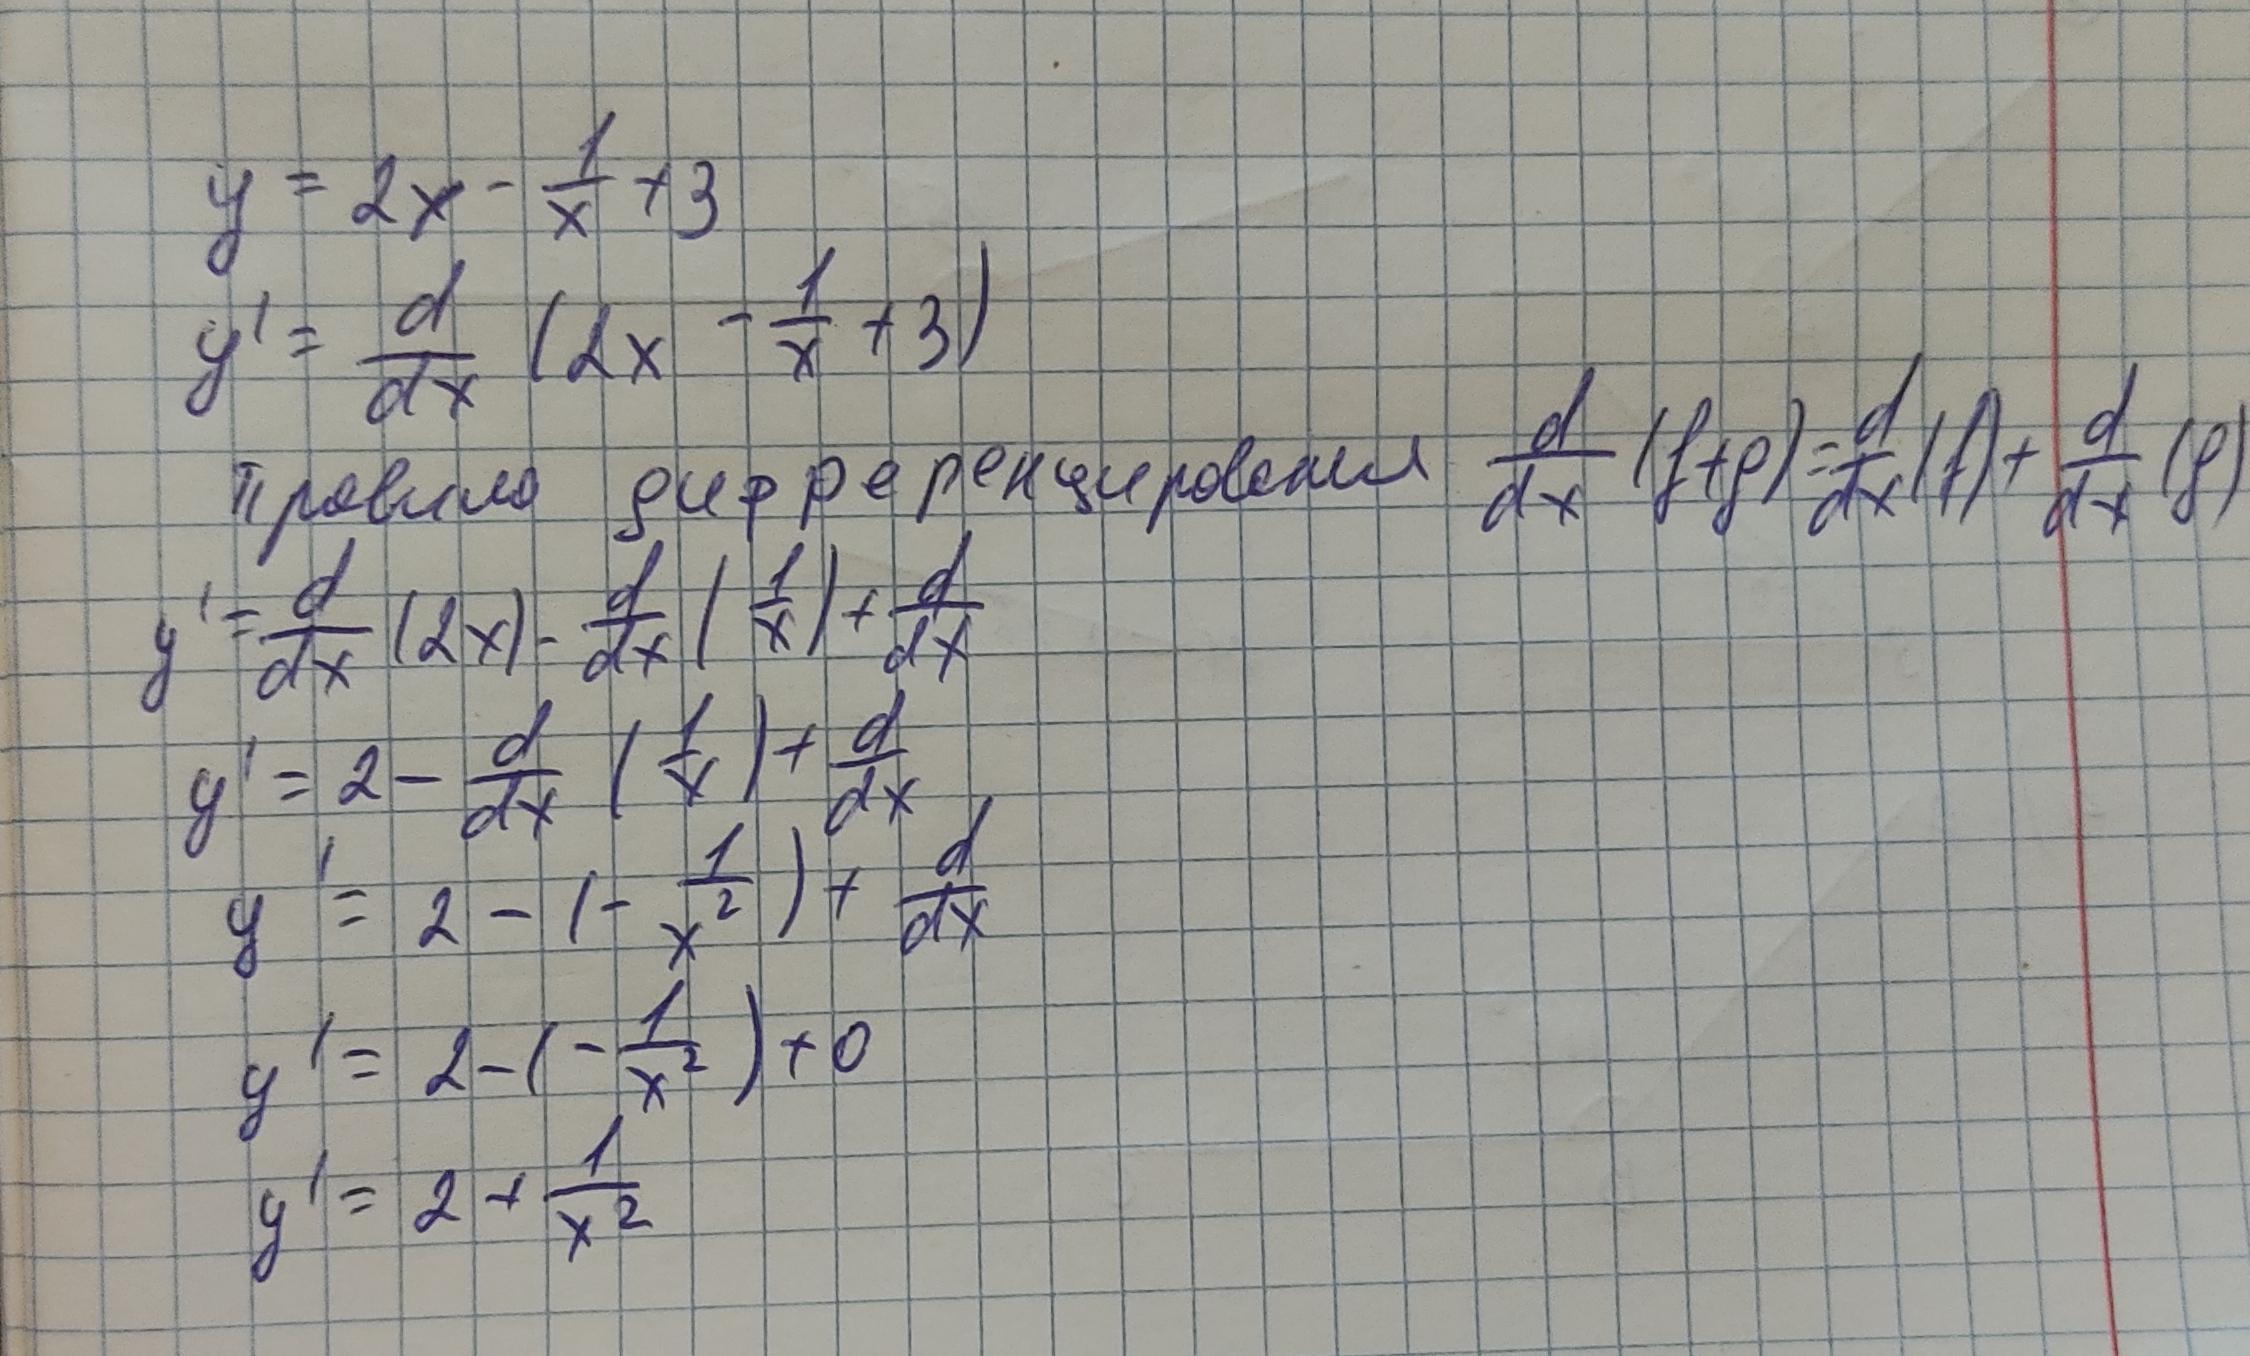 y = 2x - 1/x + 3
y' = d/dx (2x - 1/x + 3)
Правило дифференцирования d/dx (f+g) = d/dx (f) + d/dx (g)
y' = d/dx (2x) - d/dx (1/x) + d/dx
y' = 2 - d/dx (1/x) + d/dx
y' = 2 - (- 1/x²) + d/dx
y' = 2 - (- 1/x²) + 0
y' = 2 + 1/x²